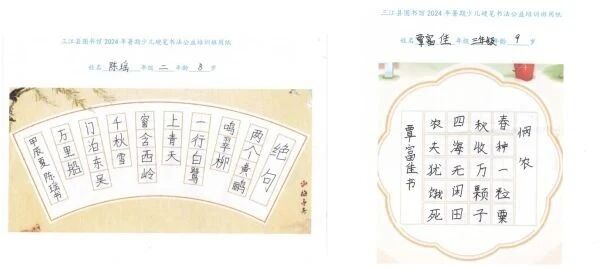 三江县图书馆2024年暑期少儿硬笔书法公益培训班用纸
姓名 陈瑶 年级 二 年龄 8 岁
绝句
两个黄鹂
鸣翠柳
一行白鹭
上青天
窗含西岭
千秋雪
门泊东吴
万里船
甲辰夏 陈瑶书
三江县图书馆2024年暑期少儿硬笔书法公益培训班用纸
姓名 覃富佳 年级 三年级 年龄 9 岁
悯农
春种一粒粟
秋收万颗子
四海无闲田
农夫犹饿死
覃富佳书